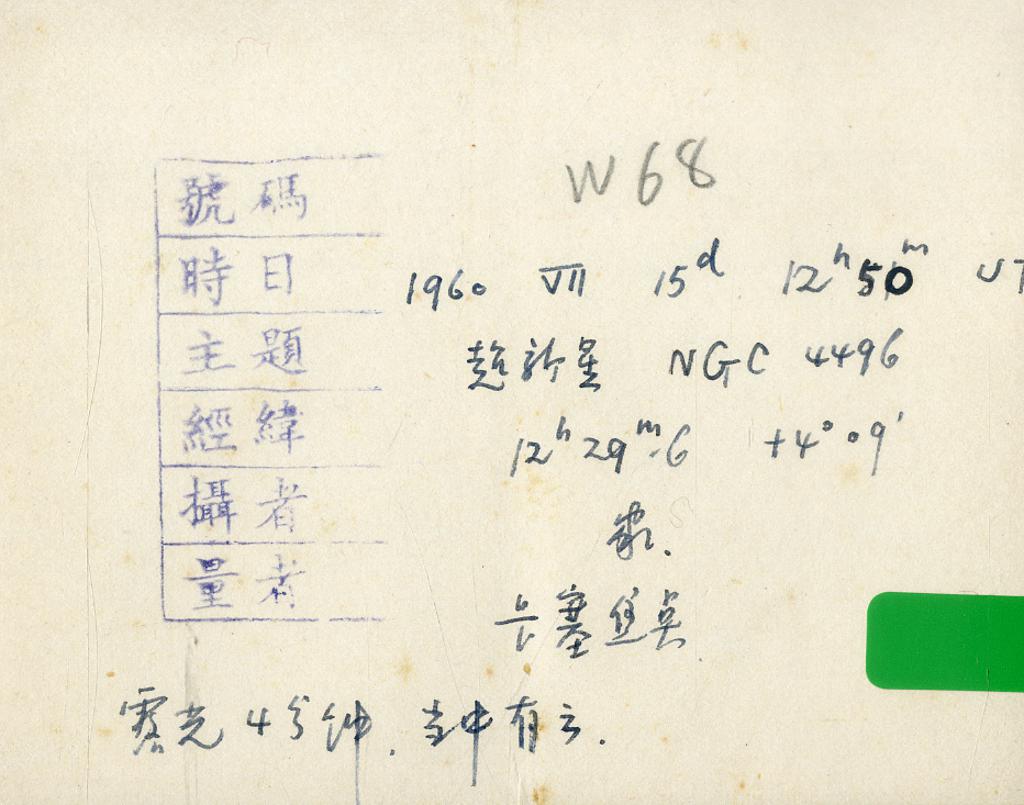 W 68
號碼
時日 1960 VII 15d 12h50m UT
主題 超新星 NGC 4496
經緯 12h29m.6 +4°09'
攝者
量者
露光4分钟.当中有云.